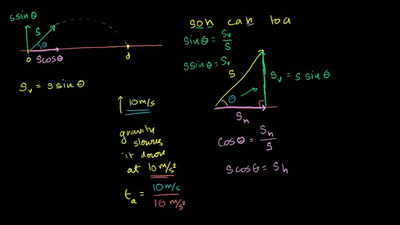 s sin θ
s
θ
s cos θ
0
d
Sv = s sin θ
soh cah toa
sin θ = Sv/S
s sin θ = Sv
S
θ
Sv = s sin θ
Sh
cos θ = Sh/S
s cos θ = Sh
↑ 10 m/s
gravity
slows
it down
at 10 m/s²
ta = 10 m/s / 10 m/s²